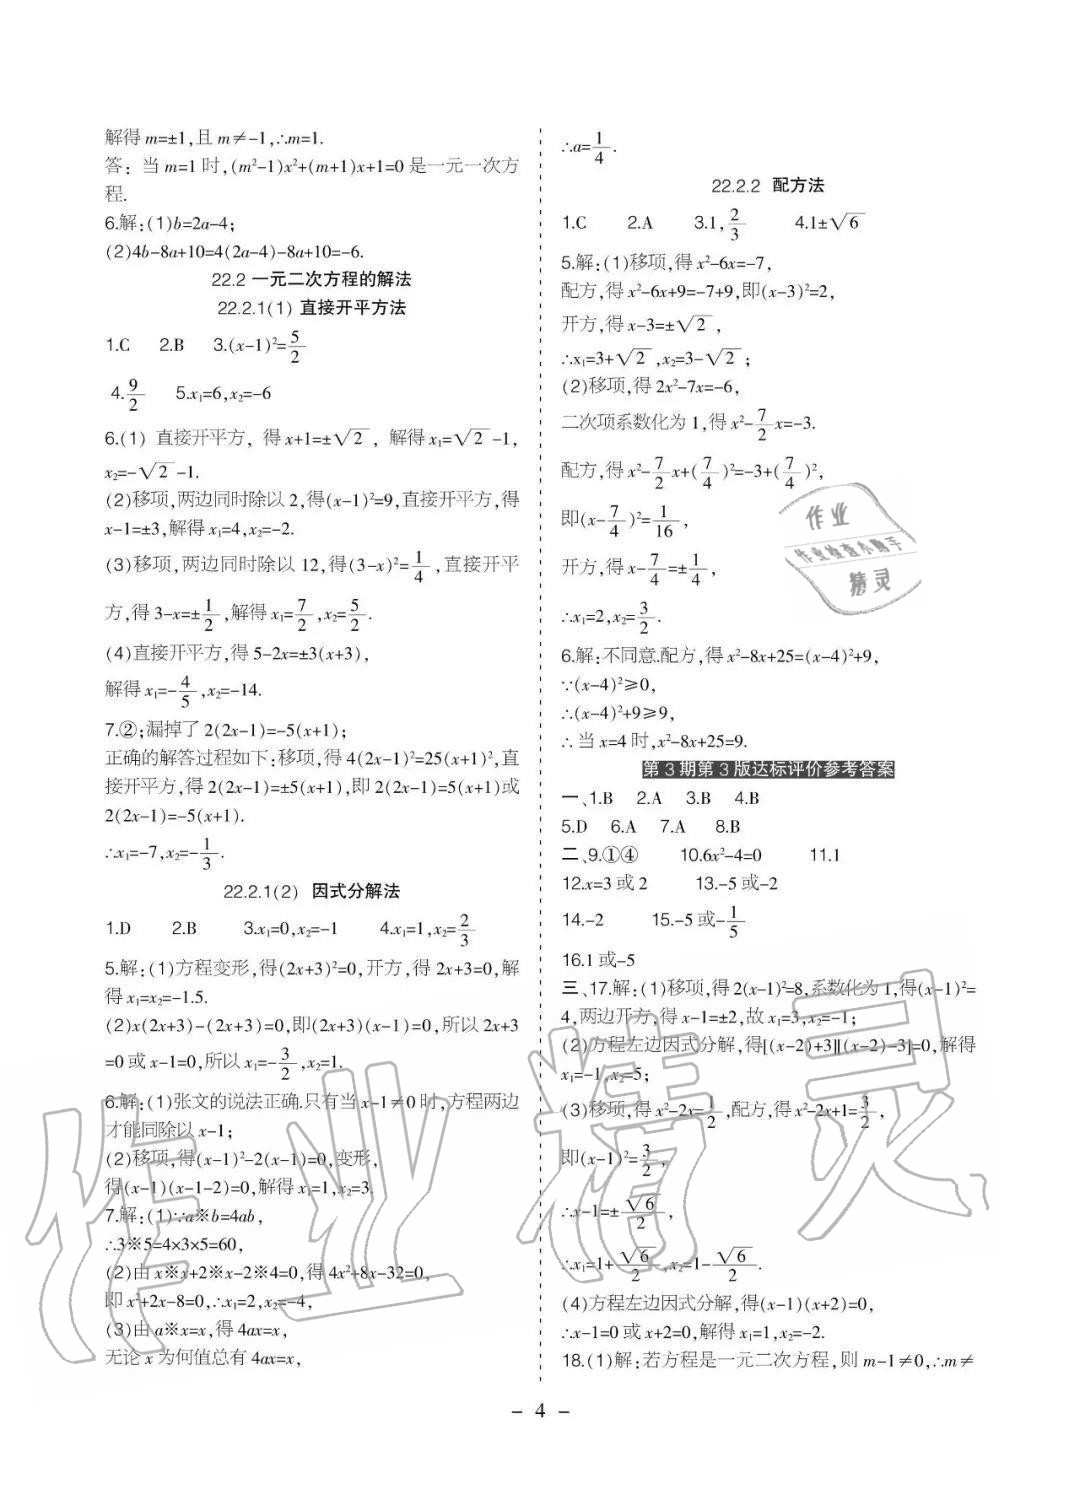 解得 m=±1,且 m≠-1,∴m=1.
答: 当 m=1 时,(m²-1)x²+(m+1)x+1=0 是一元一次方
程.
6.解:(1)b=2a-4;
(2)4b-8a+10=4(2a-4)-8a+10=-6.
22.2 一元二次方程的解法
22.2.1(1) 直接开平方法
1.C 2.B 3.(x-1)²=5/2
4.9/2 5.x₁=6,x₂=-6
6.(1) 直接开平方, 得 x+1=±√2, 解得 x₁=√2-1,
x₂=-√2-1.
(2)移项,两边同时除以 2,得(x-1)²=9,直接开平方,得
x-1=±3,解得 x₁=4,x₂=-2.
(3)移项,两边同时除以 12,得(3-x)²=1/4,直接开平
方,得 3-x=±1/2,解得 x₁=7/2,x₂=5/2.
(4)直接开平方,得 5-2x=±3(x+3),
解得 x₁=-4/5,x₂=-14.
7.②;漏掉了 2(2x-1)=-5(x+1);
正确的解答过程如下:移项,得 4(2x-1)²=25(x+1)²,直
接开平方,得 2(2x-1)=±5(x+1),即 2(2x-1)=5(x+1)或
2(2x-1)=-5(x+1).
∴x₁=-7,x₂=-1/3.
22.2.1(2) 因式分解法
1.D 2.B 3.x₁=0,x₂=-1 4.x₁=1,x₂=2/3
5.解:(1)方程变形,得(2x+3)²=0,开方,得 2x+3=0,解
得 x₁=x₂=-1.5.
(2)x(2x+3)-(2x+3)=0,即(2x+3)(x-1)=0,所以 2x+3
=0 或 x-1=0,所以 x₁=-3/2,x₂=1.
6.解:(1)张文的说法正确.只有当 x-1≠0 时,方程两边
才能同除以 x-1;
(2)移项,得(x-1)²-2(x-1)=0,变形,
得(x-1)(x-1-2)=0,解得 x₁=1,x₂=3.
7.解:(1)∵a※b=4ab,
∴3※5=4×3×5=60,
(2)由 x※x+2※x-2※4=0,得 4x²+8x-32=0,
即 x²+2x-8=0,∴x₁=2,x₂=-4,
(3)由 a※x=x,得 4ax=x,
无论 x 为何值总有 4ax=x,
∴a=1/4.
22.2.2 配方法
1.C 2.A 3.1,2/3 4.1±√6
5.解:(1)移项,得 x²-6x=-7,
配方,得 x²-6x+9=-7+9,即(x-3)²=2,
开方,得 x-3=±√2,
∴x₁=3+√2,x₂=3-√2;
(2)移项,得 2x²-7x=-6,
二次项系数化为 1,得 x²-7/2x=-3.
配方,得 x²-7/2x+(7/4)²=-3+(7/4)²,
即(x-7/4)²=1/16,
开方,得 x-7/4=±1/4,
∴x₁=2,x₂=3/2.
6.解:不同意.配方,得 x²-8x+25=(x-4)²+9,
∵(x-4)²≥0,
∴(x-4)²+9≥9,
∴当 x=4 时,x²-8x+25=9.
第 3 期第 3 版达标评价参考答案
一、1.B 2.A 3.B 4.B
5.D 6.A 7.A 8.B
二、9.①④ 10.6x²-4=0 11.1
12.x=3 或 2 13.-5 或-2
14.-2 15.-5 或-1/5
16.1 或-5
三、17.解:(1)移项,得 2(x-1)²=8,系数化为 1,得(x-1)²=
4,两边开方,得 x-1=±2,故 x₁=3,x₂=-1;
(2)方程左边因式分解,得[(x-2)+3][(x-2)-3]=0,解得
x₁=-1,x₂=5;
(3)移项,得 x²-2x=1/2,配方,得 x²-2x+1=3/2,
即(x-1)²=3/2,
∴x-1=±√6/2,
∴x₁=1+√6/2,x₂=1-√6/2.
(4)方程左边因式分解,得(x-1)(x+2)=0,
∴x-1=0 或 x+2=0,解得 x₁=1,x₂=-2.
18.(1)解:若方程是一元二次方程,则 m-1≠0,∴m≠
- 4 -
作业
作业检查小助手
精灵
作业精灵